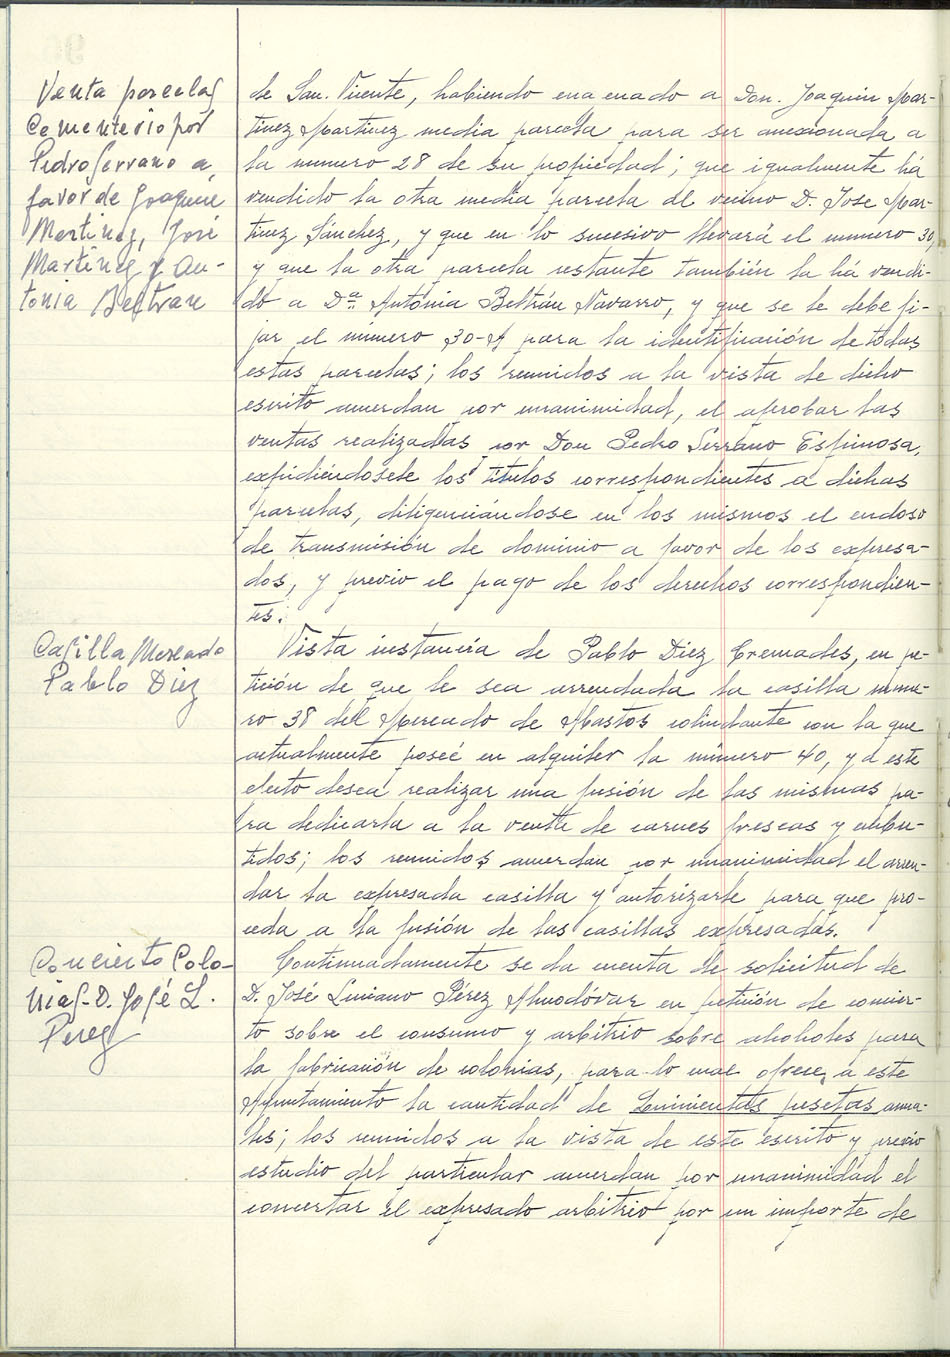 Venta parcelas
Cementerio por
Pedro Serrano a
favor de Joaquin
Martinez, José
Martinez y An-
tonia Beltran
de San Vicente, habiendo enagenado a Don Joaquin Mar-
tinez Martinez media parcela para ser anexionada a
la numero 28 de su propiedad; que igualmente há
vendido la otra media parcela al vecino D. Jose Mar-
tinez Sánchez, y que en lo sucesivo llevará el numero 30,
y que la otra parcela restante también la há vendi-
do a Dª Antónia Beltrán Navarro, y que se le debe fi-
jar el número 30-A para la identificación de todas
estas parcelas; los reunidos a la vista de dicho
escrito acuerdan por unanimidad, el aprobar las
ventas realizadas por Don Pedro Serrano Espinosa,
expidiéndosele los títulos correspondientes a dichas
parcelas, diligenciándose en los mismos el endoso
de transmisión de dominio a favor de los expresa-
dos, y previo el pago de los derechos correspondien-
tes.
Casilla Mercado
Pablo Diez
Vista instancia de Pablo Diez Cremades, en pe-
tición de que le sea arrendada la casilla núme-
ro 38 del Mercado de Abastos colindante con la que
actualmente poseé en alquiler la número 40, y a este
efecto desea realizar una fusión de las mismas pa-
ra dedicarla a la venta de carnes frescas y embu-
tidos; los reunidos acuerdan por unanimidad el arren-
dar la expresada casilla y autorizarle para que pro-
ceda a la fusión de las casillas expresadas.
Concierto Colo-
nias-D. José L.
Perez
Continuadamente se da cuenta de solicitud de
D. José Luciano Pérez Almodóvar en petición de concier-
to sobre el consumo y arbitrio sobre alcoholes para
la fabricación de colonias, para lo cual ofrece a este
Ayuntamiento la cantidad de Quinientas pesetas anua-
les; los reunidos a la vista de este escrito y previo
estudio del particular acuerdan por unanimidad el
concertar el expresado arbitrio por un importe de